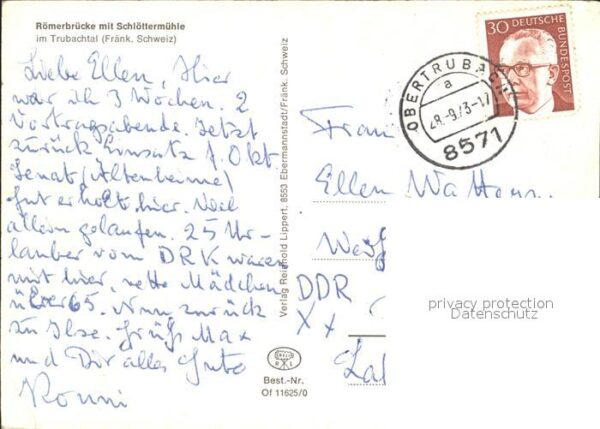 Römerbrücke mit Schlöttermühle
im Trubachtal (Fränk. Schweiz)
Liebe Ellen, Hier
war ich 3 Wochen. 2
Vortragsabende. Jetzt
zurück Einsatz f. Okt.
Senat (Altenheime)
Gut erholt hier. Viel
allein gelaufen. 25 Ur-
lauber vom DRK waren
mit hier, nette Mädchen
über 65. Nun zurück
zu Ilse. Grüß Max
und Dir alles Gute
Ronni
Verlag Reinhold Lippert, 8553 Ebermannstadt/Fränk. Schweiz
Best.-Nr.
Of 11625/0
30 DEUTSCHE BUNDESPOST
OBERTRUBACH
a
28.-9.73-17
8571
Frau
Ellen
DDR
XX
privacy protection
Datenschutz